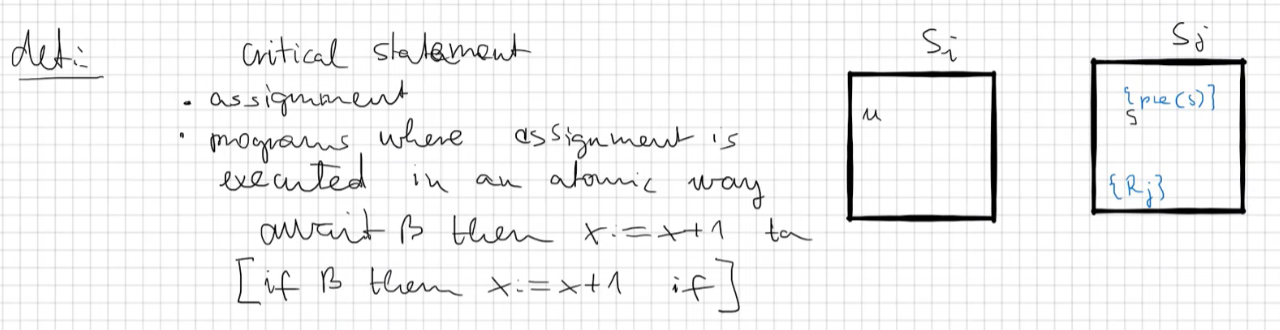 def:
critical statement
• assignment
• programs where assignment is
executed in an atomic way
await B then x:=x+1 ta
[if B then x:=x+1 if]
Si
u
Sj
{pre(s)}
s
{Rj}